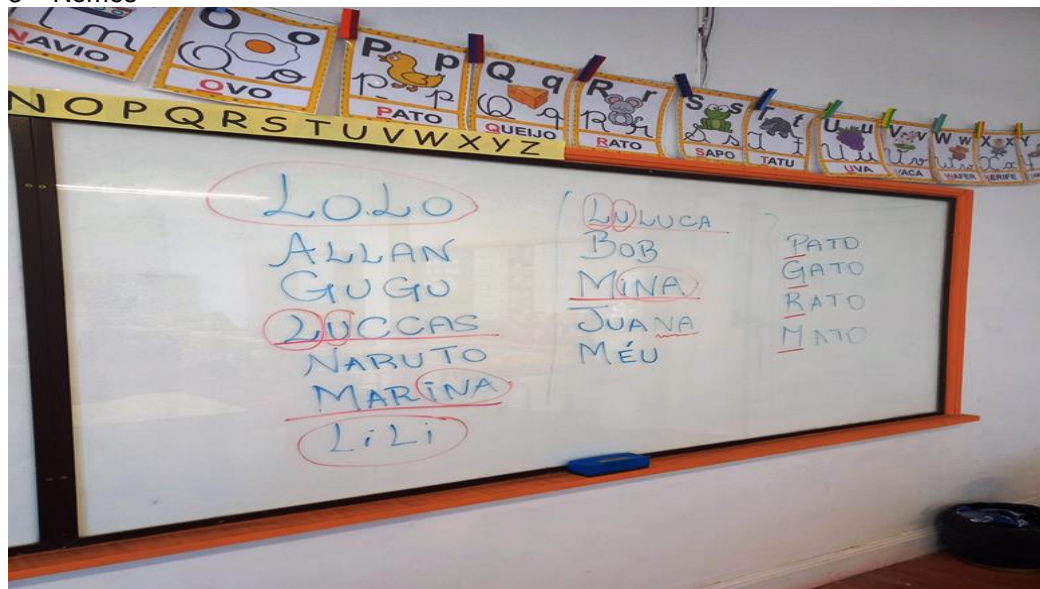 N NAVIO
O o OVO
P p PATO
Q q QUEIJO
R r RATO
S s SAPO
T t TATU
U u UVA
V v VACA
W w WAFER
X x XERIFE
Y
NOPQRSTUVWXYZ
LOLO
ALLAN
GUGU
LUCCAS
NARUTO
MARINA
LiLi
LULUCA
BOB
MINA
JUANA
MÉU
PATO
GATO
RATO
MATO